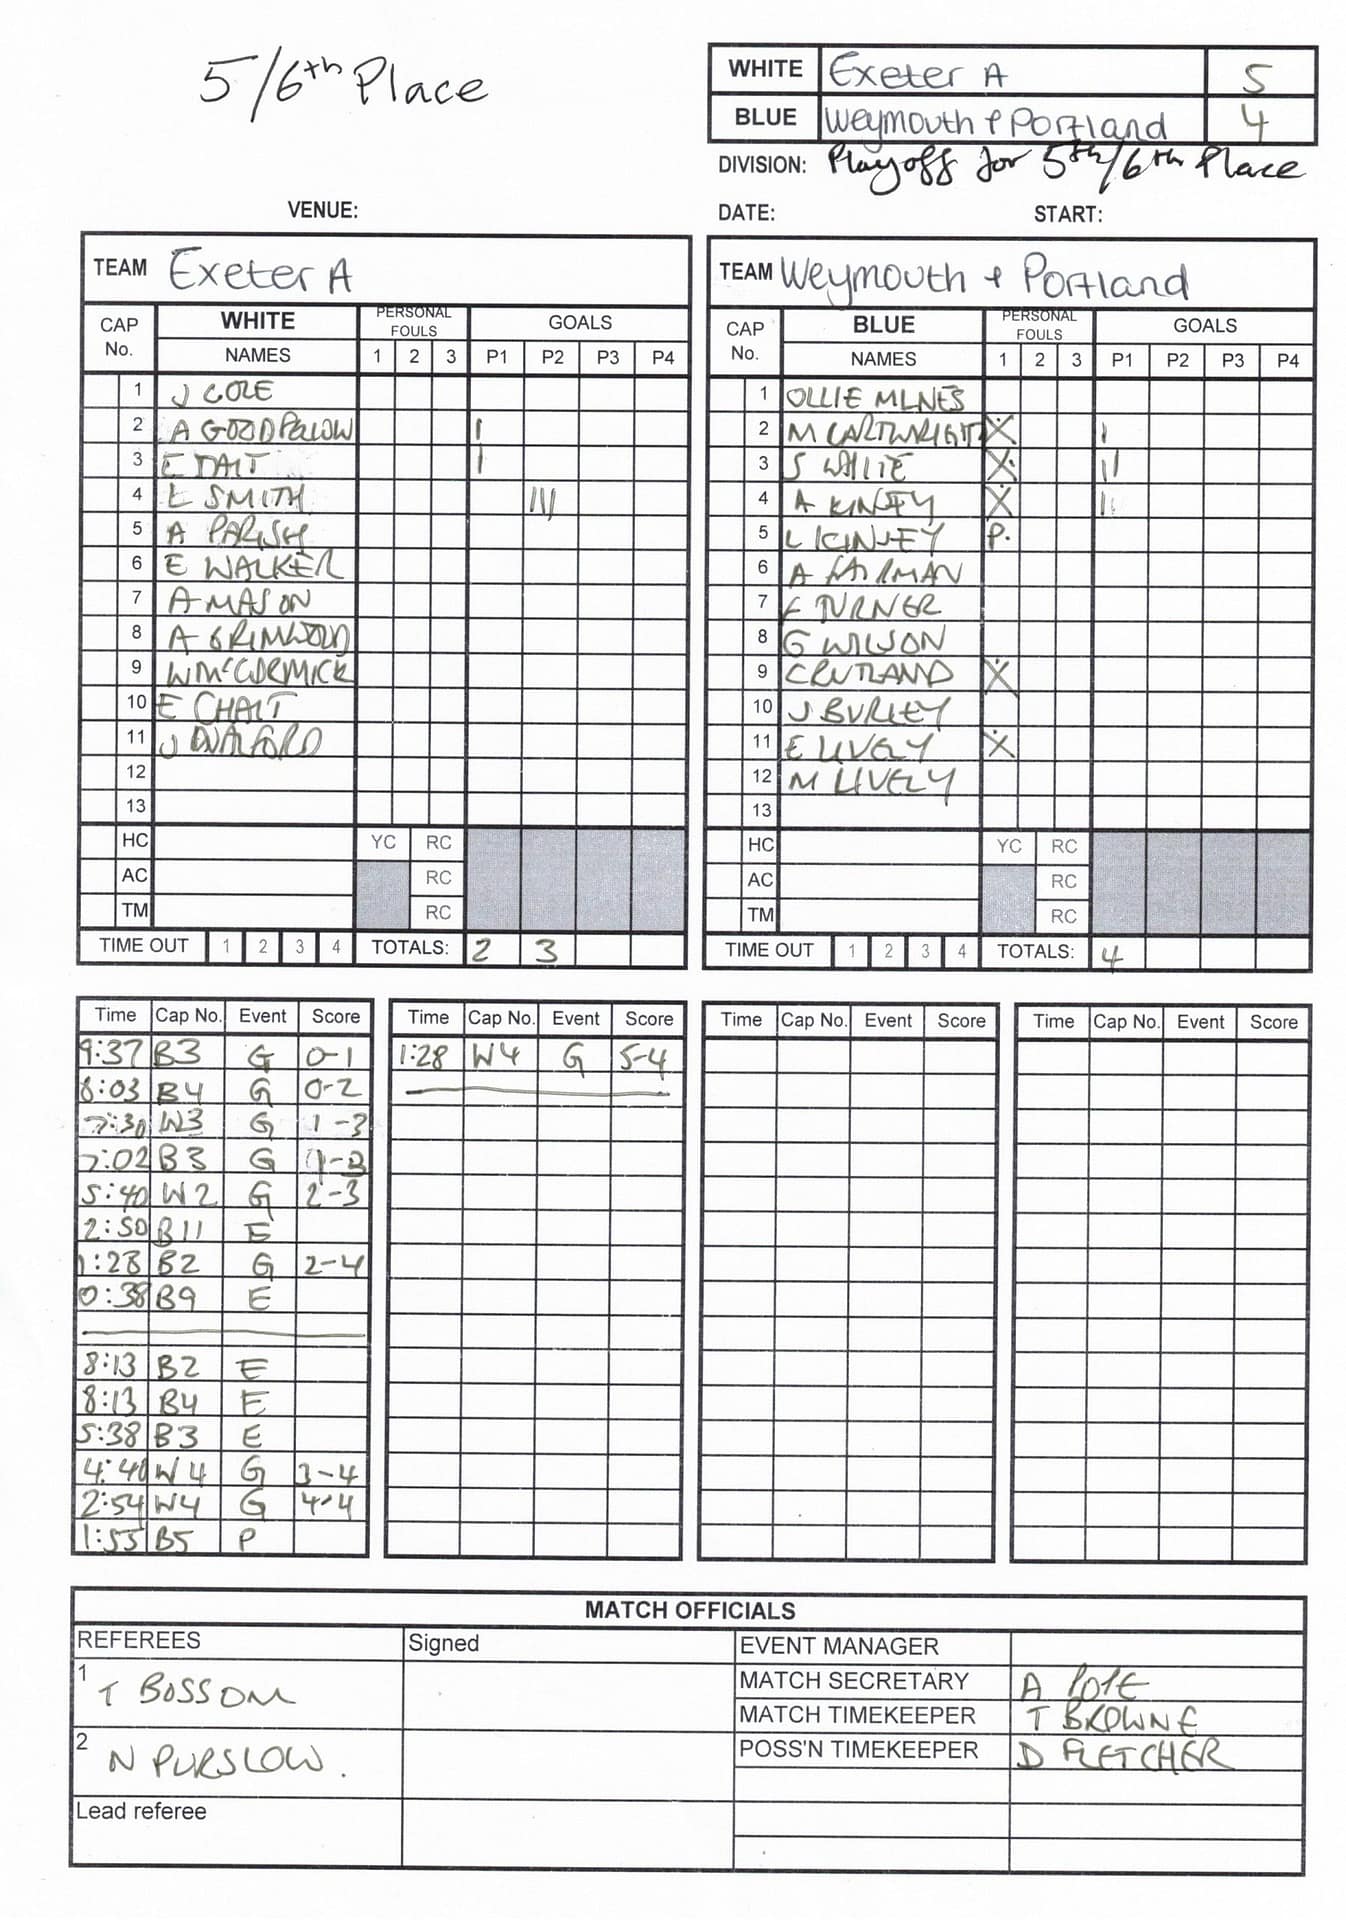 5/6th Place
WHITE Exeter A 5
BLUE Weymouth + Portland 4
DIVISION: Playoff for 5th/6th Place
VENUE:
DATE: START:
TEAM Exeter A
CAP No. WHITE PERSONAL FOULS GOALS
NAMES 1 2 3 P1 P2 P3 P4
1 J COLE
2 A GOODFELLOW I
3 E TAIT I
4 L SMITH III
5 A PARISH
6 E WALKER
7 A MASON
8 A GRIMWOOD
9 W McCORMICK
10 E CHAIT
11 J
12
13
HC YC RC
AC RC
TM RC
TIME OUT 1 2 3 4 TOTALS: 2 3
TEAM Weymouth + Portland
CAP No. BLUE PERSONAL FOULS GOALS
NAMES 1 2 3 P1 P2 P3 P4
1 OLLIE MLNES
2 M CARTWRIGHT X I
3 S WHITE X II
4 A X II
5 L P.
6 A FAIRMAN
7 F TURNER
8 G WILSON
9 C RUTLAND X
10 J BURLEY
11 E LIVELY X
12 M LIVELY
13
HC YC RC
AC RC
TM RC
TIME OUT 1 2 3 4 TOTALS: 4
Time Cap No. Event Score
9:37 B3 G 0-1
8:03 B4 G 0-2
7:30 W3 G
7:02 B3 G
5:40 W2 G 2-3
2:50 B11 E
1:28 B2 G 2-4
0:38 B9 E
8:13 B2 E
8:13 B4 E
5:38 B3 E
4:40 W4 G 3-4
2:54 W4 G 4-4
1:55 B5 P
Time Cap No. Event Score
1:28 W4 G 5-4
Time Cap No. Event Score
Time Cap No. Event Score
MATCH OFFICIALS
REFEREES Signed
1 T BOSSOM
2 N PURSLOW.
Lead referee
EVENT MANAGER
MATCH SECRETARY A POPE
MATCH TIMEKEEPER T BROWNE
POSS'N TIMEKEEPER D FLETCHER